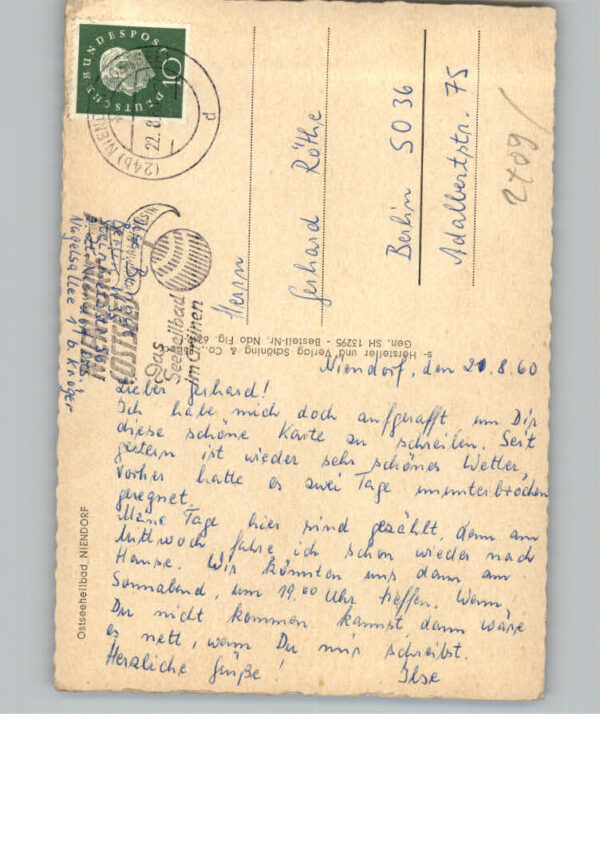 DEUTSCHE BUNDESPOST
10
(24b) NIENDORF
22.8.
d
Das
Seeheilbad
im Grünen
NIENDORF
OSTSEE
Nugelsallee 1 b. Krüger
Herrn
Gerhard Röthe
Berlin SO 36
Adalbertstr. 75
2409/
Hersteller und Verlag Schöning & Co., Lübeck
Gen. SH 13295 - Bestell-Nr. Ndo Flg. 62
Ostseeheilbad NIENDORF
Niendorf, den 21.8.60
Lieber Gerhard!
Ich habe mich doch aufgerafft um Dir
diese schöne Karte zu schreiben. Seit
gestern ist wieder sehr schönes Wetter,
vorher hatte es zwei Tage ununterbrochen
geregnet.
Meine Tage hier sind gezählt, denn am
Mittwoch fahre ich schon wieder nach
Hause. Wir könnten uns dann am
Sonnabend, um 19.00 Uhr treffen. Wenn
Du nicht kommen kannst, dann wäre
es nett, wenn Du mir schreibst.
Herzliche Grüße!
Ilse